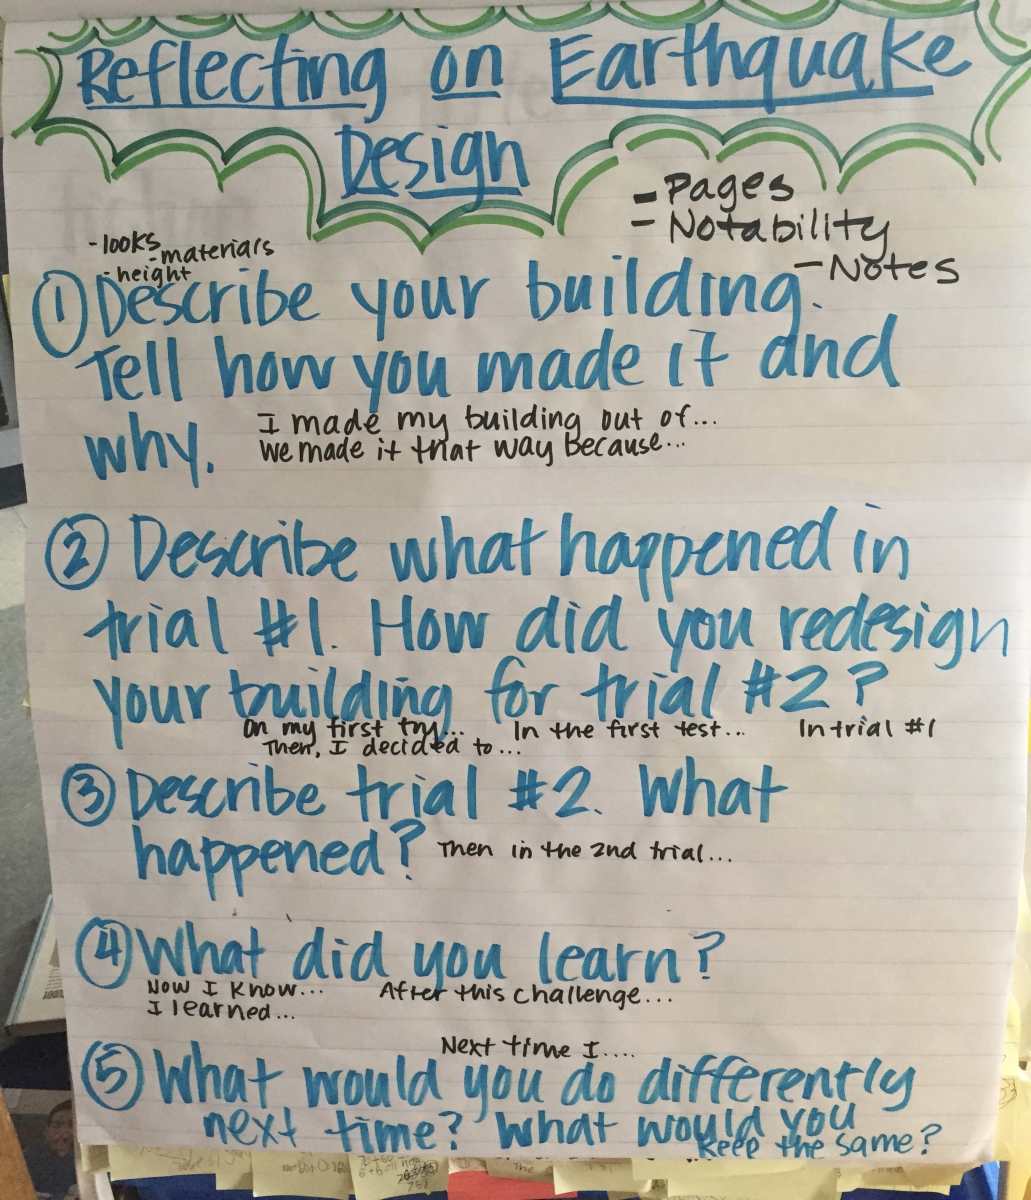 Reflecting on Earthquake
Design
- Pages
- Notability
- Notes
- looks
- materials
- height
① Describe your building.
Tell how you made it and
why.
I made my building out of...
We made it that way because...
② Describe what happened in
trial #1. How did you redesign
your building for trial #2?
On my first try... In the first test... In trial #1
Then, I decided to...
③ Describe trial #2. What
happened? Then in the 2nd trial...
④ What did you learn?
Now I know... After this challenge...
I learned...
Next time I....
⑤ What would you do differently
next time? What would you
keep the same?